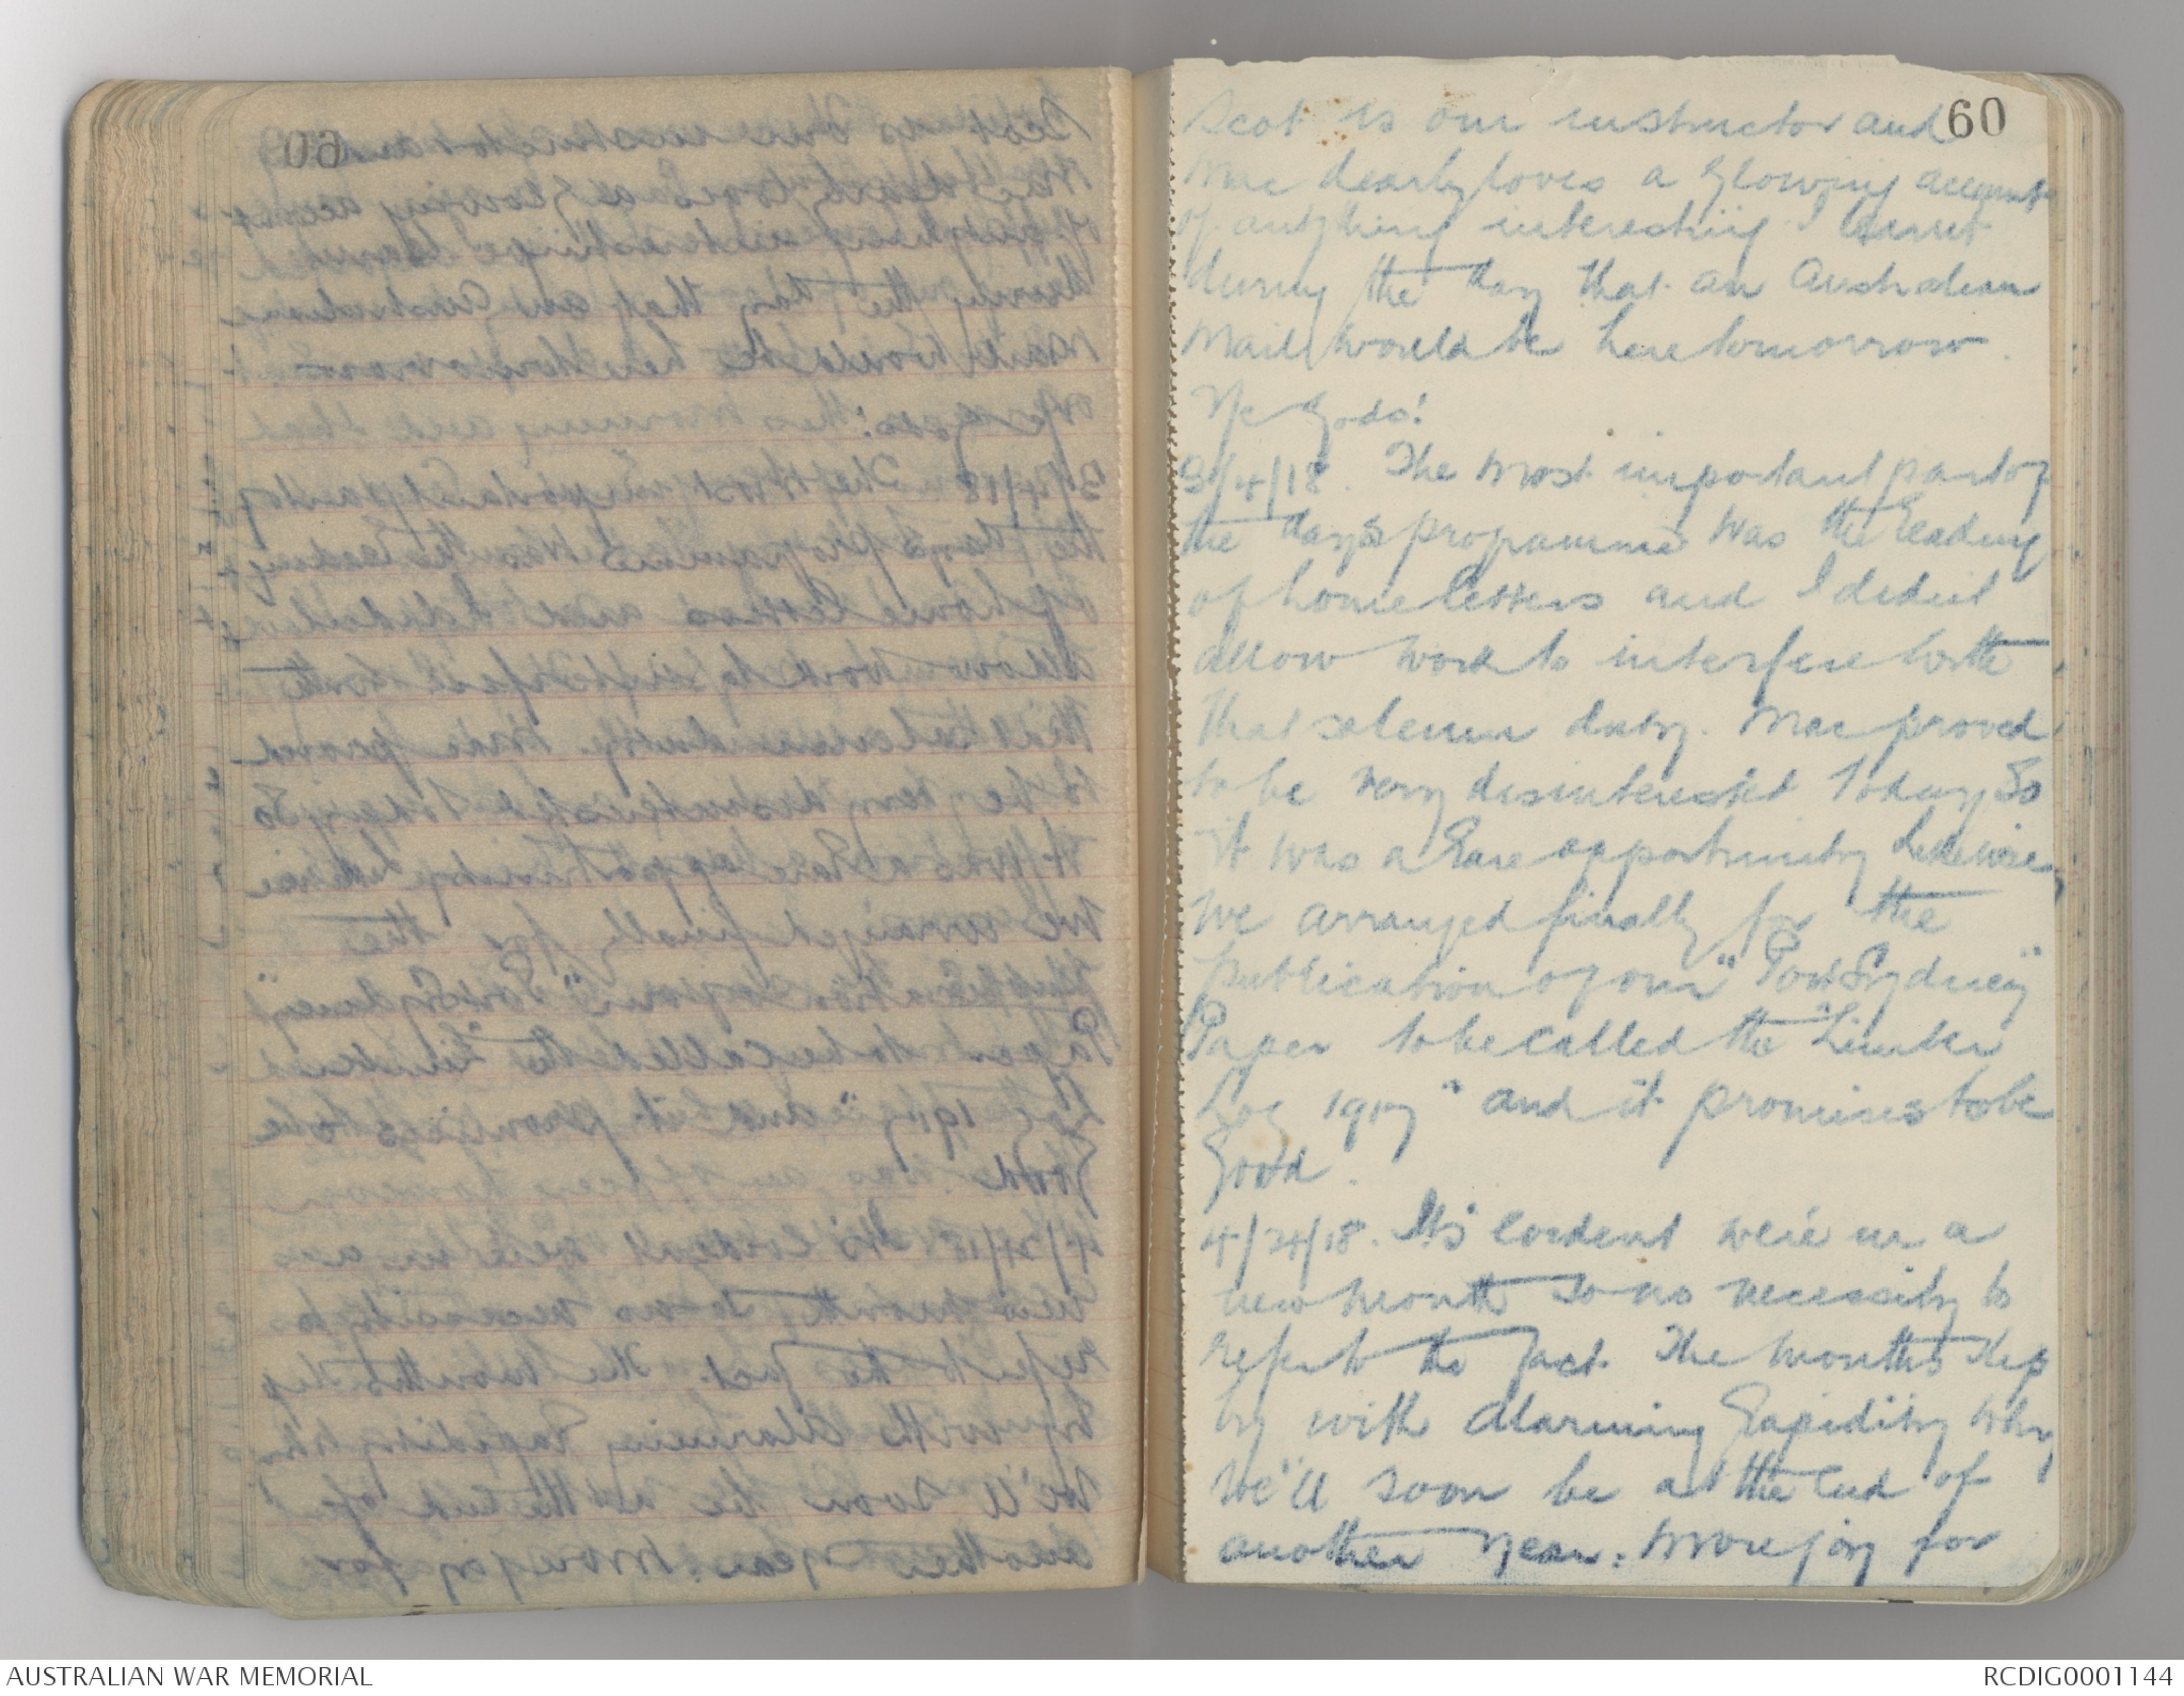 60
Scot is our instructor and
Mac dearly loves a glowing account
of anything interesting I learnt
during the day that an Australian
Mail would be here tomorrow.
Ye Gods!
3/4/18. The most important part of
the days programme was the reading
of home letters and I didnt
allow work to interfere with
that solemn duty. Mac proved
to be very disinterested today so
it was a rare opportunity likewise
we arranged finally for the
publication of our "Port Sydney"
Paper to be called the "Limber
Log 1917" and it promises to be
good.
4/4/18. Its evident we're in a
new month so no necessity to
refer to the fact. The months slip
by with alarming rapidity why
we'll soon be at the end of
another year: more joy for
AUSTRALIAN WAR MEMORIAL
RCDIG0001144